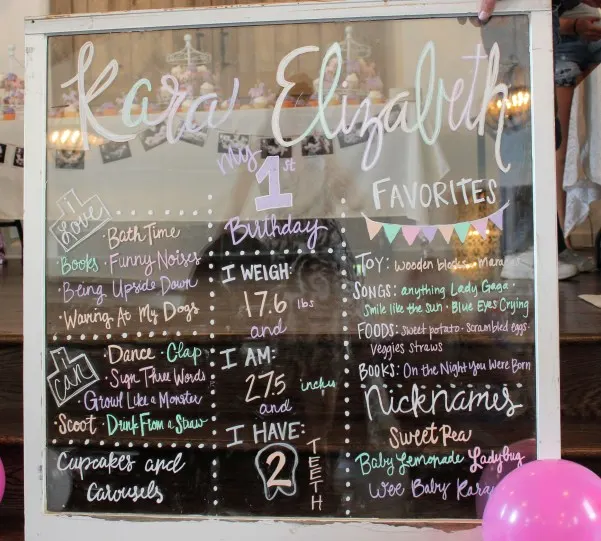 Kara Elizabeth
My 1st
Birthday
I Love
· Bath Time
· Books · Funny Noises
· Being Upside Down
· Waving At My Dogs
I CAN
· Dance · Clap
· Sign Three Words
· Growl Like a Monster
· Scoot · Drink From a Straw
Cupcakes and
Carousels
I WEIGH:
17.6 lbs
and
I AM:
27.5 inches
and
I HAVE:
2
TEETH
FAVORITES
TOY: wooden blocks ·
SONGS: anything Lady Gaga ·
Smile like the Sun · Blue Eyes Crying
FOODS: sweet potato · scrambled eggs ·
veggies straws
BOOKS: On the Night You Were Born
Nicknames
Sweet Pea
Baby Lemonade Ladybug
Wee Baby Kara